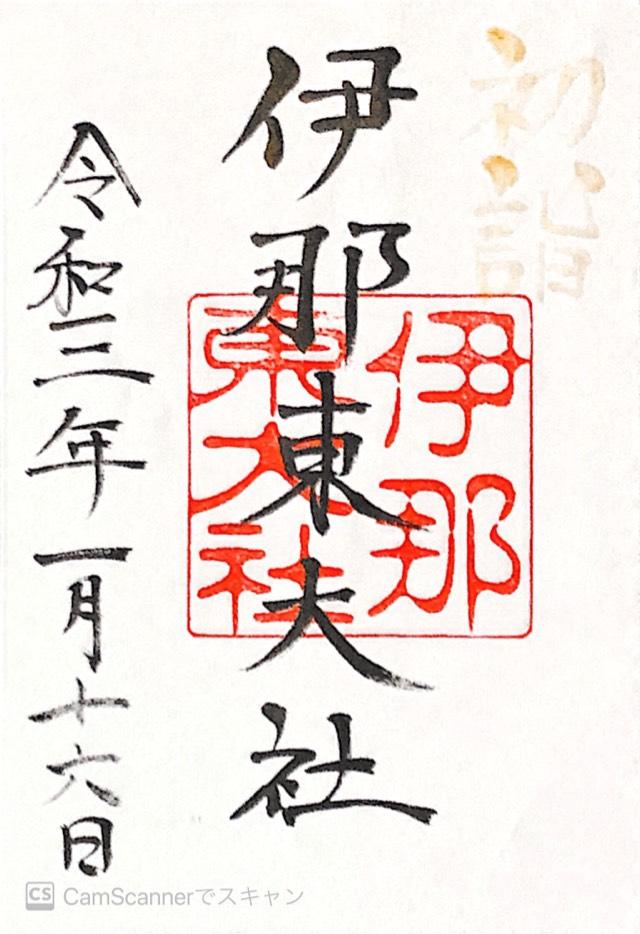 初詣
伊那東大社
伊那
東大社
令和三年一月十六日
CS CamScannerでスキャン